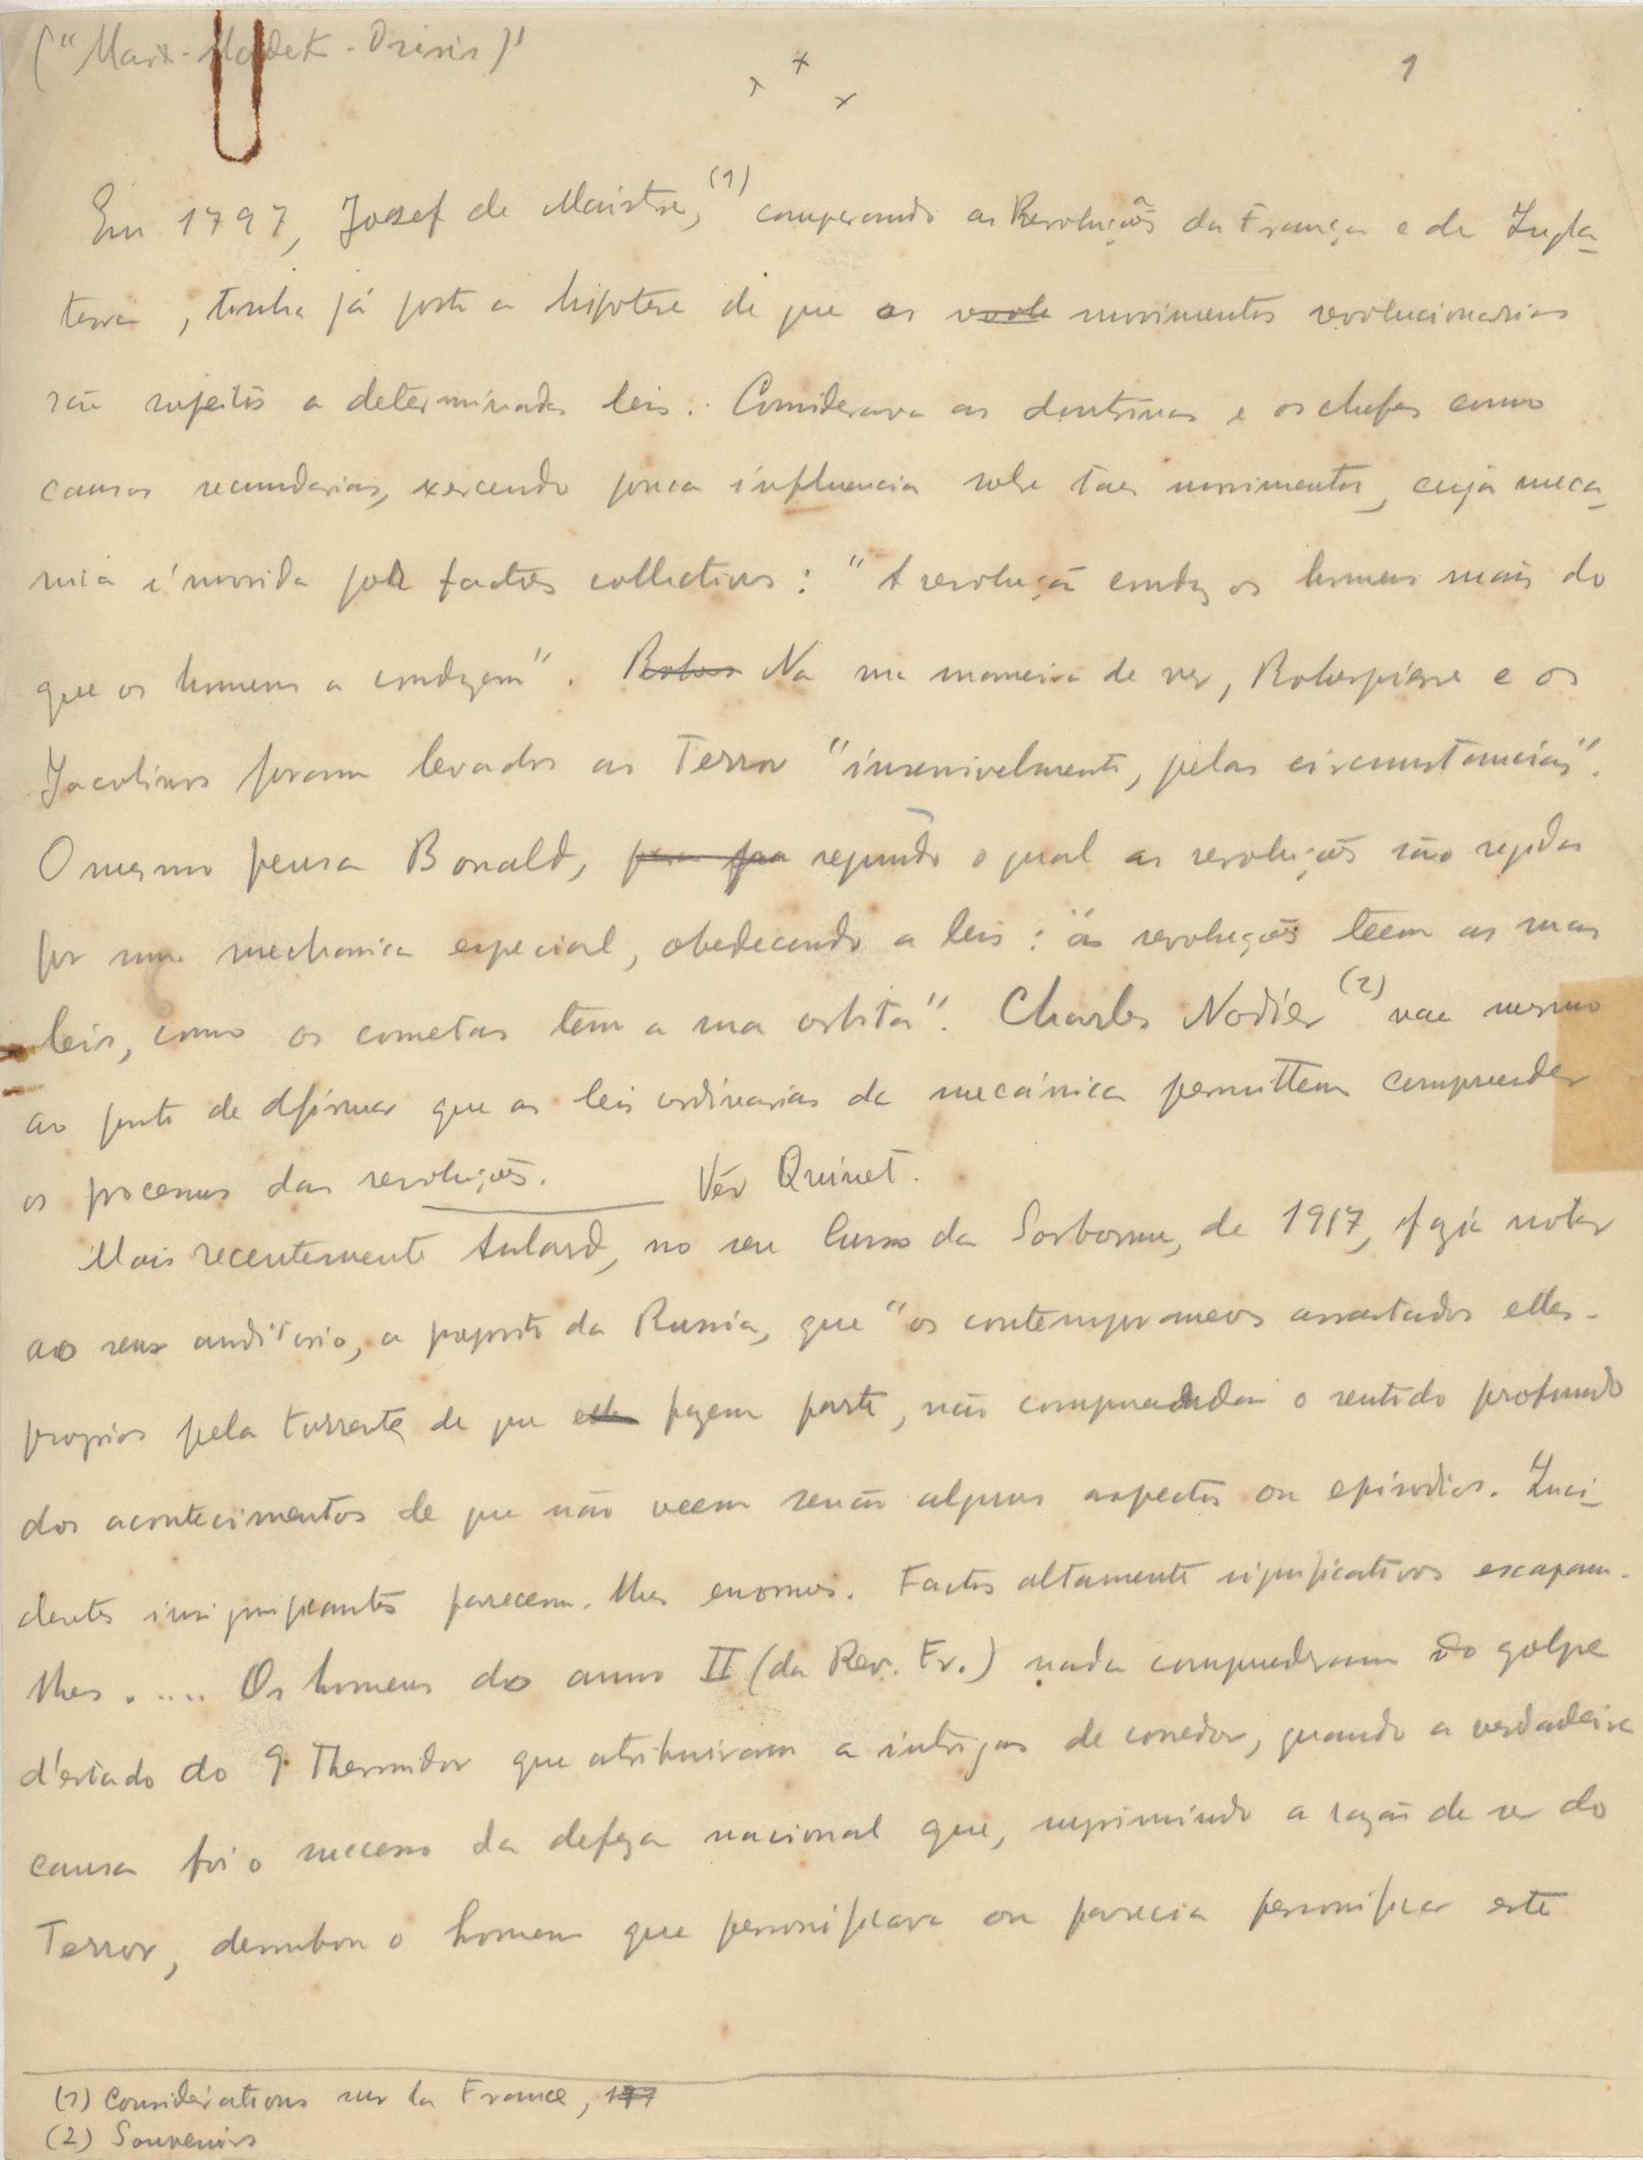 ("Marx - - Osiris)"
1
Em 1797, Josef de Maistre, (1) comparando as Revoluções da França e da Ingla-
terra, tinha já posto a hipotese de que os movimentos revolucionarios
são sujeitos a determinadas leis. Considerava as doutrinas e os chefes como
causas secundarias, exercendo pouca influencia sobre taes movimentos, cuja meca-
nica é movida por factores collectivos: "A revolução conduz os homens mais do
que os homens a conduzem". Na sua maneira de ver, Robespierre e os
Jacobinos foram levados ao Terror "insensivelmente, pelas circumstancias".
O mesmo pensa Bonald, segundo o qual as revoluções são regidas
por uma mechanica especial, obedecendo a leis: "as revoluções teem as suas
leis, como os cometas tem a sua orbita". Charles Nodier (2) vae mesmo
ao ponto de afirmar que as leis ordinarias da mecánica permittem comprender
os processos das revoluções. Vêr Quinet.
Mais recentemente Aulard, no seu Curso da Sorbonne, de 1917, fazia notar
ao seu auditorio, a proposito da Russia, que "os contemporaneos arrastados elles-
proprios pela torrente de que fazem parte, não comprendem o sentido profundo
dos acontecimentos de que não veem senão alguns aspectos ou episodios. Inci-
dentes insignificantes parecem-lhes enormes. Factos altamente significativos escapam-
lhes..... Os homens do anno II (da Rev. Fr.) nada comprenderam do golpe
d'estado do 9 Thermidor que atribuiram a intrigas de corredor, quando a verdadeira
causa foi o successo da defeza nacional que, suprimindo a razão de ser do
Terror, derrubou o homem que personificava ou parecia personificar este
(1) Considérations sur la France,
(2) Souvenirs